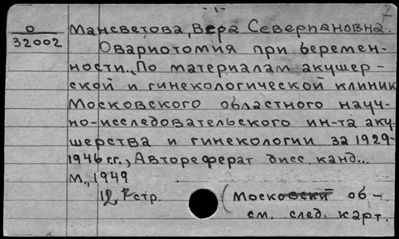 - 1 -
0
32002
Мансветова, Вера Северпановна.
Овариотомия при беремен-
ности. По материалам акушер-
ской и гинекологической клиник
Московского областного науч-
но-исследовательского ин-та аку-
шерства и гинекологии за 1929-
1946 гг., Автореферат дисс. канд...
М., 1949
12 стр. (Московский об-
см. след. карт.